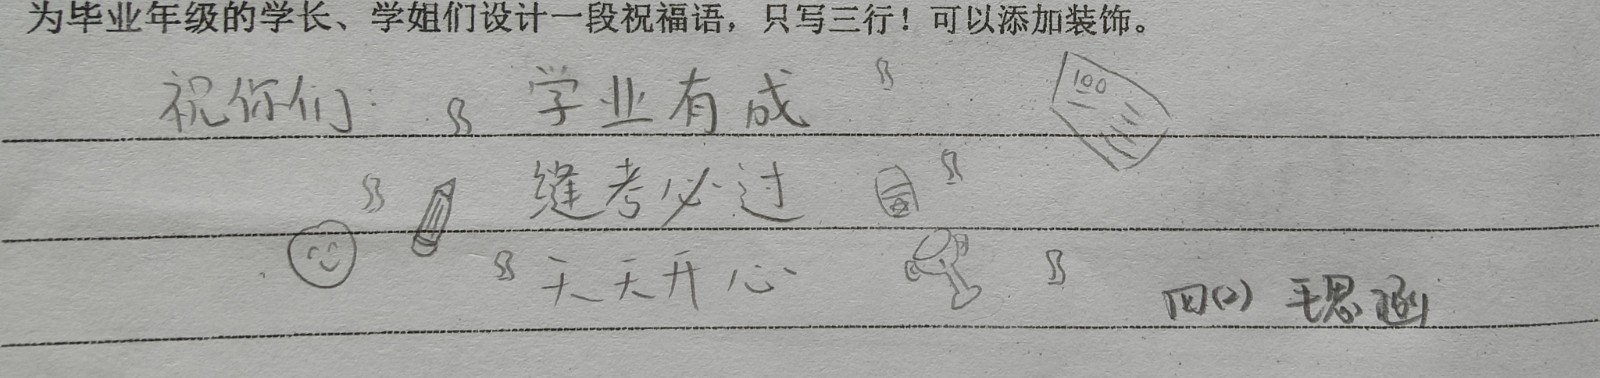 为毕业年级的学长、学姐们设计一段祝福语，只写三行！可以添加装饰。
祝你们： 学业有成
100
缝考必过
天天开心
四(2) 王思涵